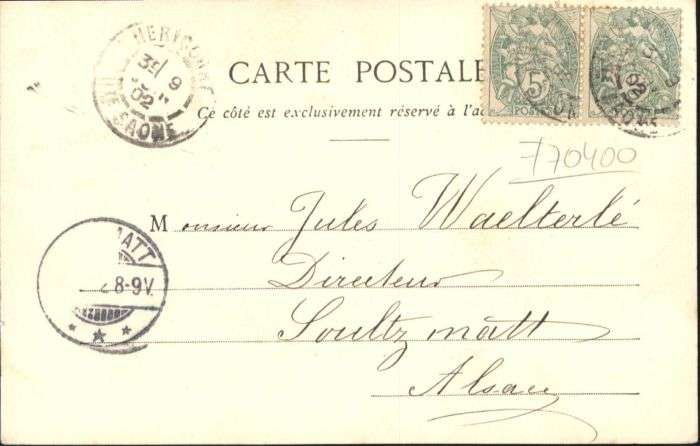 HERICOURT
9
02
HTE SAONE
CARTE POSTALE
Ce côté est exclusivement réservé à l'a
5
POSTES
02
770400
Monsieur Jules Waelterlé
Directeur
Soultzmatt
Alsace
MATT
8-9V.